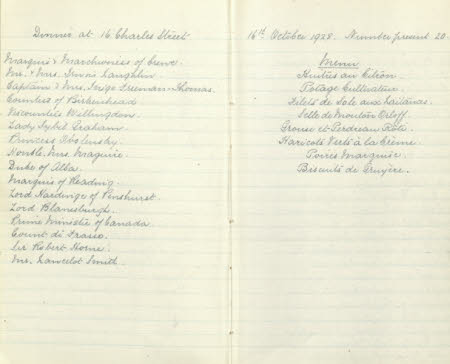 Dinner at 16 Charles Street
Marquis & Marchioness of Crewe.
Mr. & Mrs. Irwin Laughlin.
Captain & Mrs. Inigo Freeman-Thomas.
Countess of Birkenhead
Viscountess Willingdon.
Lady Sybil Graham.
Princess Obolensky.
Honble. Mrs. Maguire.
Duke of Alba.
Marquis of Reading.
Lord Hardinge of Penshurst.
Lord Blanesburgh.
Prime Minister of Canada.
Count di Frasso.
Sir Robert Horne.
Mr. Lancelot Smith.
16th October 1928. Number present 20.
Menu
Huitres au Citron.
Potage Cultivateur.
Filets de Sole aux
Selle de Mouton Orloff.
Grouse et Perdreau Rotis.
Haricots Verts à la Crème.
Poires Marquise.
Biscuits de Gruyère.